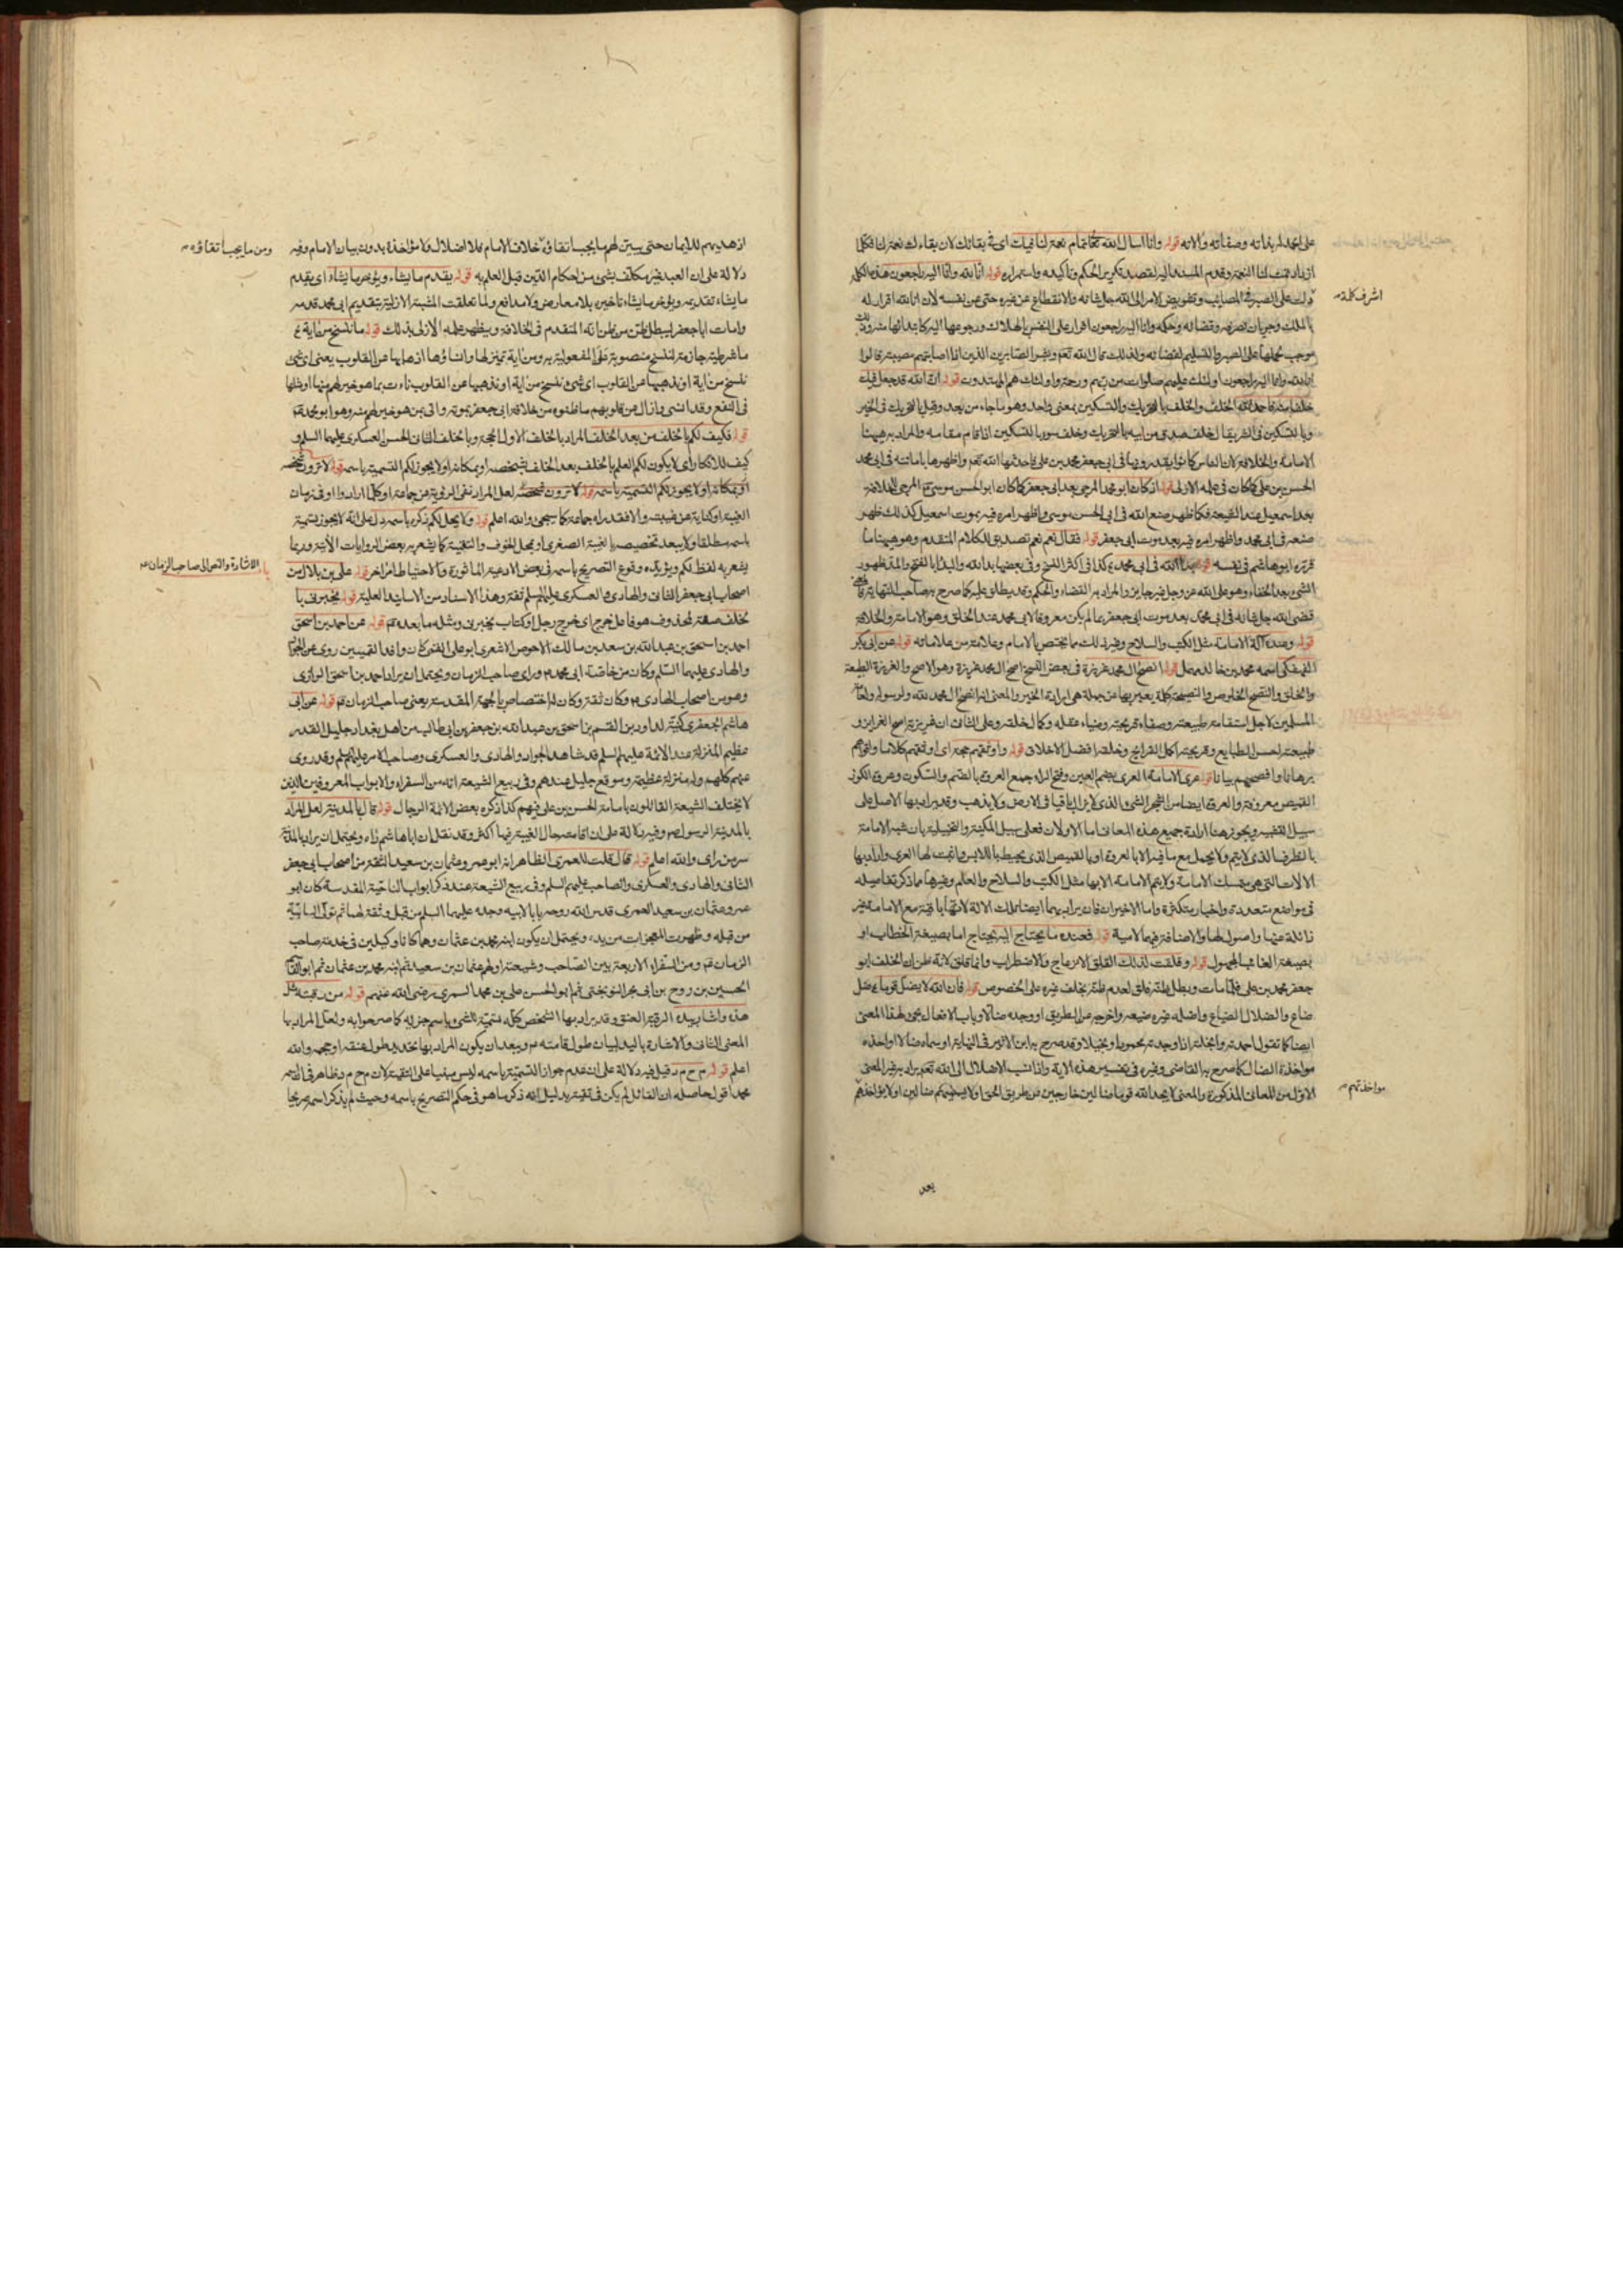 على انحمد لله بذاته وصفاته والائه قوله وانا اسال الله تعالى تمام نعمه لنا فيك اى فى بقائك لان بقاءك نعمة لنا فكلما
ازداد تمت لنا النعمة وقدم المسند اليه لقصد تكرير الحكم وتاكيده واستمراره قوله انا لله وانا اليه راجعون هذه الكلمة
اشرف كلمة
دلت على الصبر فى المصائب وتفويض الامر الى الله جل شانه والانقطاع عن غيره حتى عن نفسه لان انا لله اقرار له
بالملك وجريان تصرفه وقضائه وحكمه وانا اليه راجعون اقرار على النفس بالهلاك ورجوعها اليه كابتدائها منه وذلك
موجب لحملها على الصبر والتسليم لقضائه ولذلك قال الله تعالى وبشر الصابرين الذين اذا اصابتهم مصيبة قالوا
انا لله وانا اليه راجعون اولئك عليهم صلوات من ربهم ورحمة واولئك هم المهتدون قوله ان الله قد جعل فيك
خلفا منه فاحمد الله الخلف والخلف بالتحريك والتسكين بمعنى واحد وهو ما جاء من بعد وقيل بالتحريك فى الخير
وبالتسكين فى الشر يقال خلف صدق من ابيه بالتحريك وخلف سوء بالتسكين اذا قام مقامه والمراد به هيهنا
الامامة والخلافة لان الناس كانوا يقدرونها فى ابى جعفر محمد بن على فاحدثها الله تعم واظهرها باماتته فى ابى محمد
الحسن بن على كما كان فى علمه الازلى قوله اذ كان ابو محمد المرجى بعد ابى جعفر كما كان ابو الحسن موسى ع المرجى للخلافة
بعد اسمعيل عند الشيعة فكما ظهر صنع الله فى ابى الحسن موسى واظهر امره فيه بموت اسمعيل كذلك ظهر
صنعه فى ابى محمد واظهر امره فيه بعد موت ابى جعفر قوله فقال نعم نعم تصديق للكلام المتقدم وهو هيهنا ما
قرره ابو هاشم فى نفسه قوله بدا لله فى ابى محمد ع كذا فى اكثر النسخ وفى بعضها بدا لله والبداء بالفتح والمد ظهور
الشىء بعد الخفاء وهو على الله عز وجل غير جايز والمراد به القضاء والحكم وقد يطلق عليه كما صرح به صاحب النهاية فالمعنى
قضى الله جل شانه فى ابى محمد بعد موت ابى جعفر بما لم يكن معروفا لابى محمد عند الخلق وهو الامامة والخلافة
قوله وعنده آلة الامامة مثل الكتب والسلاح وغير ذلك مما يختص بالامام وعلامة من علاماته قوله عن ابى بكر
الفهفكى اسمه محمد بن خالد مهمل قوله انصح ال محمد غريزة فى بعض النسخ اصح ال محمد غريزة وهو الاصح والغريزة الطبيعة
والخلق والنصح الخلوص والنصيحة كلمة يعبر بها عن جملة هى ارادة الخير والمعنى انه انصح ال محمد لله ولرسوله ولعامة
المسلمين لاجل استقامة طبيعته وصفاء قريحته وضياء عقله وكمال خلقه وعلى الثانى ان غريزته اصح الغرايز و
طبيعته احسن الطبايع وقريحته اكمل القرايح وخلقه افضل الاخلاق قوله واوثقهم حجة اى اوثقهم كلاما واقواهم
برهانا وافصحهم بيانا قوله عرى الامامة العرى بضم العين وفتح الراء جمع العروة بالضم والسكون وعروة الكوز و
القميص معروفة والعروة ايضا من الشجر الشىء الذى لا يزال باقيا فى الارض ولا يذهب وقد يراد بها الاصل على
سبيل التشبيه ويجوز هنا ارادة جميع هذه المعانى اما الاولان فعلى سبيل المكنية والتخييلية بان شبه الامامة
بالظرف الذى لا يتم ولا يحمل مع ما فيه الا بالعروة او بالقميص الذى يحيط باللابس واثبت لها العرى واراد بها
الالات التى هى تمسك الامامة ولا يتم الامامة الا بها مثل الكتب والسلاح والعلم وغيرها مما ذكر تفاصيله
فى مواضع متعددة واخبار متكثرة واما الاخيران فان يراد بهما ايضا تلك الالة لانها باقية مع الامامة غير
زائلة عنها واصول لها والاضافة فيهما لامية قوله فعنده ما يحتاج اليه يحتاج اما بصيغة الخطاب او
بصيغة الغائب المجهول قوله وقلقت لذلك القلق الانزعاج والاضطراب وانما قلق لانه ظن ان الخلف ابو
جعفر محمد بن على فلما مات وبطل ظنه قلق لعدم ظنه بخلف غيره على الخصوص قوله فان الله لا يضل قوما يضل
ضاع والضلال الضياع واضله غيره ضيعه واخرجه عن الطريق او وجده ضالا وباب الافعال يجىء لهذا المعنى
ايضا كما تقول احمدته وابخلته اذا وجدته محمودا وبخيلا وقد صرح به ابن الاثير فى النهاية او سماه ضالا او اخذه
مواخذة الضال كما صرح به القاضى وغيره فى تفسير هذه الاية واذا نسب الاضلال الى الله تعم يراد به غير المعنى
الاول من المعانى المذكورة والمعنى لا يجد الله قوما ضالين خارجين من طريق الحق او لا يسميهم ضالين او لا يؤاخذهم
مواخذتهم
بعد
ومن ما يجب اتقاؤه
اذ هديهم للايمان حتى يبين لهم ما يجب اتقاؤه خلاف الامام فلا اضلال فلا مؤاخذة بدون بيان الامام وفيه
دلالة على ان العبد غير مكلف بشىء من احكام الدين قبل العلم به قوله يقدم ما يشاء ويؤخر ما يشاء اى يقدم
ما يشاء تقديمه ويؤخر ما يشاء تاخيره بلا معارض ولا مدافع ولما تعلقت المشية الازلية بتقديم ابى محمد قدمه
وامات ابا جعفر ليبطل ظن من يظن انه المتقدم فى الخلافة ويظهر علمه الازلى بذلك قوله ما ننسخ من اية
ما شرطية جازمة لننسخ منصوبة على المفعولية به ومن اية تميز لها وانساؤها اذهابها عن القلوب يعنى اى شىء
ننسخ من اية او نذهبها عن القلوب اى شىء ننسخ من اية او نذهبها عن القلوب ناءت بما هو خير لهم منها او مثلها
فى النفع وقد انسى وازال عن قلوبهم ما ظنوه من خلافة ابى جعفر بموته واتى بمن هو خير لهم منه وهو ابو محمد
قوله فكيف لكم بالخلف من بعد الخلف المراد بالخلف الاول الحجة وبالخلف الثانى الحسن العسكرى عليهما السلم و
كيف للانكار اى لا يكون لكم العلم بالخلف بعد الخلف بشخصه او بمكانه او لا يجوز لكم التسمية باسمه قوله لا ترون شخصه
او بمكانه او لا يجوز لكم التسمية باسمه قوله لا ترون شخصه لعل المراد نفى الرؤية عن جماعة او كلما ارادوا او فى زمان
الغيبة او كناية عن غيبته والا فقد راه جماعة كما سيجىء والله اعلم قوله ولا يحل لكم ذكره باسمه دل على انه لا يجوز تسمية
باسمه مطلقا ولا يبعد تخصيصه بالغيبة الصغرى او بمحل الخوف والتقية كما يشعر به بعض الروايات الآتية وربما
الاشارة والنص الى صاحب الزمان
يشعر به لفظ لكم ويؤيده وقوع التصريح باسمه فى بعض الادعية الماثورة والاحتياط امر اخر قوله على بن بلال من
اصحاب ابى جعفر الثانى والهادى والعسكرى عليهم السلم ثقة وهذا الاسناد من الاسانيد العلية قوله يخبرنى با
لخلف صفة لمحذوف هو فاعل خرج اى خرج رجل او كتاب يخبرنى ومثله ما بعده قوله عن احمد بن اسحق
احمد بن اسحق بن عبد الله بن سعد بن مالك الاحوص الاشعرى ابو على القمى كان وافد القميين روى عن الجواد
والهادى عليهما السلم وكان من خاصة ابى محمد وراى صاحب الزمان ويحتمل ان يراد احمد بن اسحق الرازى
وهو من اصحاب الهادى وكان ثقة وكان له اختصاص بالجهة المقدسة يعنى صاحب الزمان قوله عن ابى
هاشم الجعفرى كنية لداود بن القسم بن اسحق بن عبد الله بن جعفر بن ابى طالب من اهل بغداد جليل القدر
عظيم المنزلة عند الائمة عليهم السلم قد شاهد الجواد والهادى والعسكرى وصاحب الامر عليهم السلم وقد روى
عنهم كلهم وله منزلة عظيمة وموقع جليل عندهم وفى ربيع الشيعة انه من السفراء والابواب المعروفين الذين
لا يختلف الشيعة القائلون بامامة الحسن بن على فيهم كذا ذكره بعض الائمة الرجال قوله قال بالمدينة لعل المراد
بالمدينة مدينة الرسول وفيه دلالة على ان اقامته حال الغيبة فيها اكثر وقد نقل ان ابا هاشم راه ويحتمل ان يراد بالمدينة
سر من راى والله اعلم قوله قال قلت للعمرى الظاهر انه ابو عمرو عثمان بن سعيد الثقة من اصحاب ابى جعفر
الثانى والهادى والعسكرى والصاحب عليهم السلم وفى ربيع الشيعة عند ذكر ابواب الناحية المقدسة كان ابو
عمرو عثمان بن سعيد العمرى قدس الله روحه بابا لابيه وجده عليهما السلم من قبل وثقة لهما ثم تولى البابية
من قبله وظهرت المعجزات من يده ويحتمل ان يكون ابنه محمد بن عثمان وهما كانا وكيلين فى خدمة صاحب
الزمان ومن السفراء الاربعة بين الصاحب وشيعته اولهم عثمان بن سعيد ثم ابنه محمد بن عثمان ثم ابو القاسم
الحسين بن روح بن ابى بحر النوبختى ثم ابو الحسن على بن محمد السمرى رضى الله عنهم قوله من رقبته مثل
هذه واشار بيده الرقبة العنق وقد يراد بها الشخص كله تسمية للشىء باسم جزئه كما صرحوا به ولعل المراد بها
المعنى الثانى والاشارة باليد لبيان طول قامته ويبعد ان يكون المراد بها تحديد طول عنقه او حجمه والله
اعلم قوله م ح م د قيل فيه دلالة على ان عدم جواز التسمية باسمه ليس مبنيا على التقية لان م ح م د ظاهر فى ان اسمه
محمد اقول حاصله ان القائل لم يكن فى تقية بدليل انه ذكر ما هو فى حكم التصريح باسمه وحيث لم يذكر اسمه صريحا